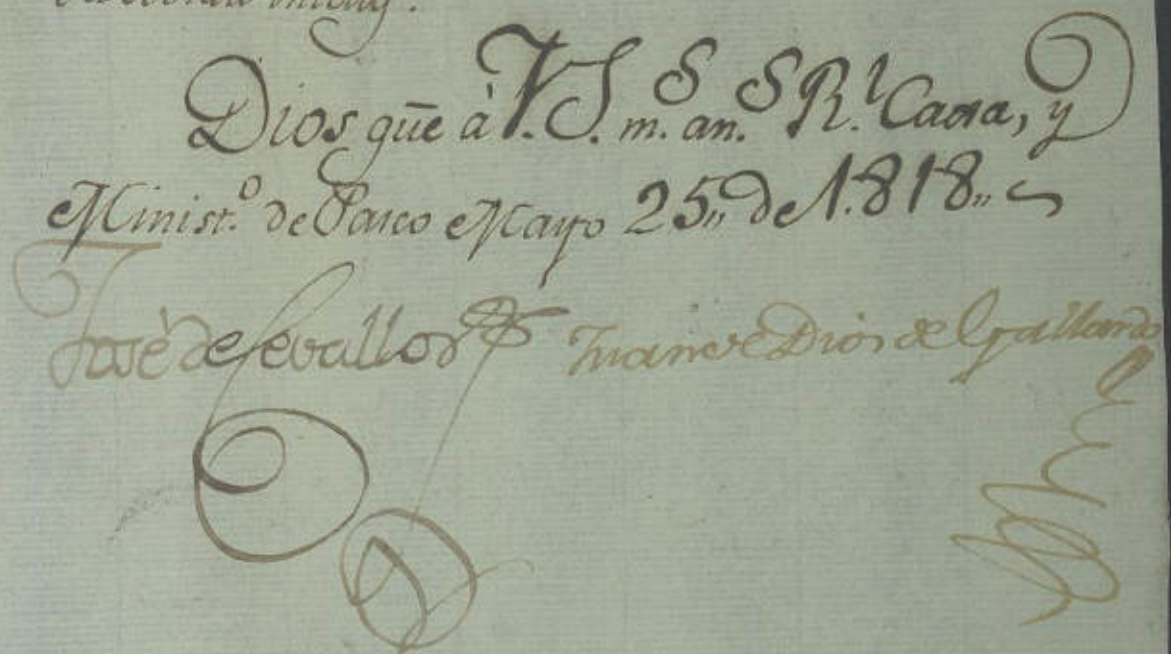 Dios gūe à V.S. m.s an.s R.l Caxa, y
Minist.o de Pasco Mayo 25,, de 1.818,,
José de Cevallos Juan de Dios de Gallardo